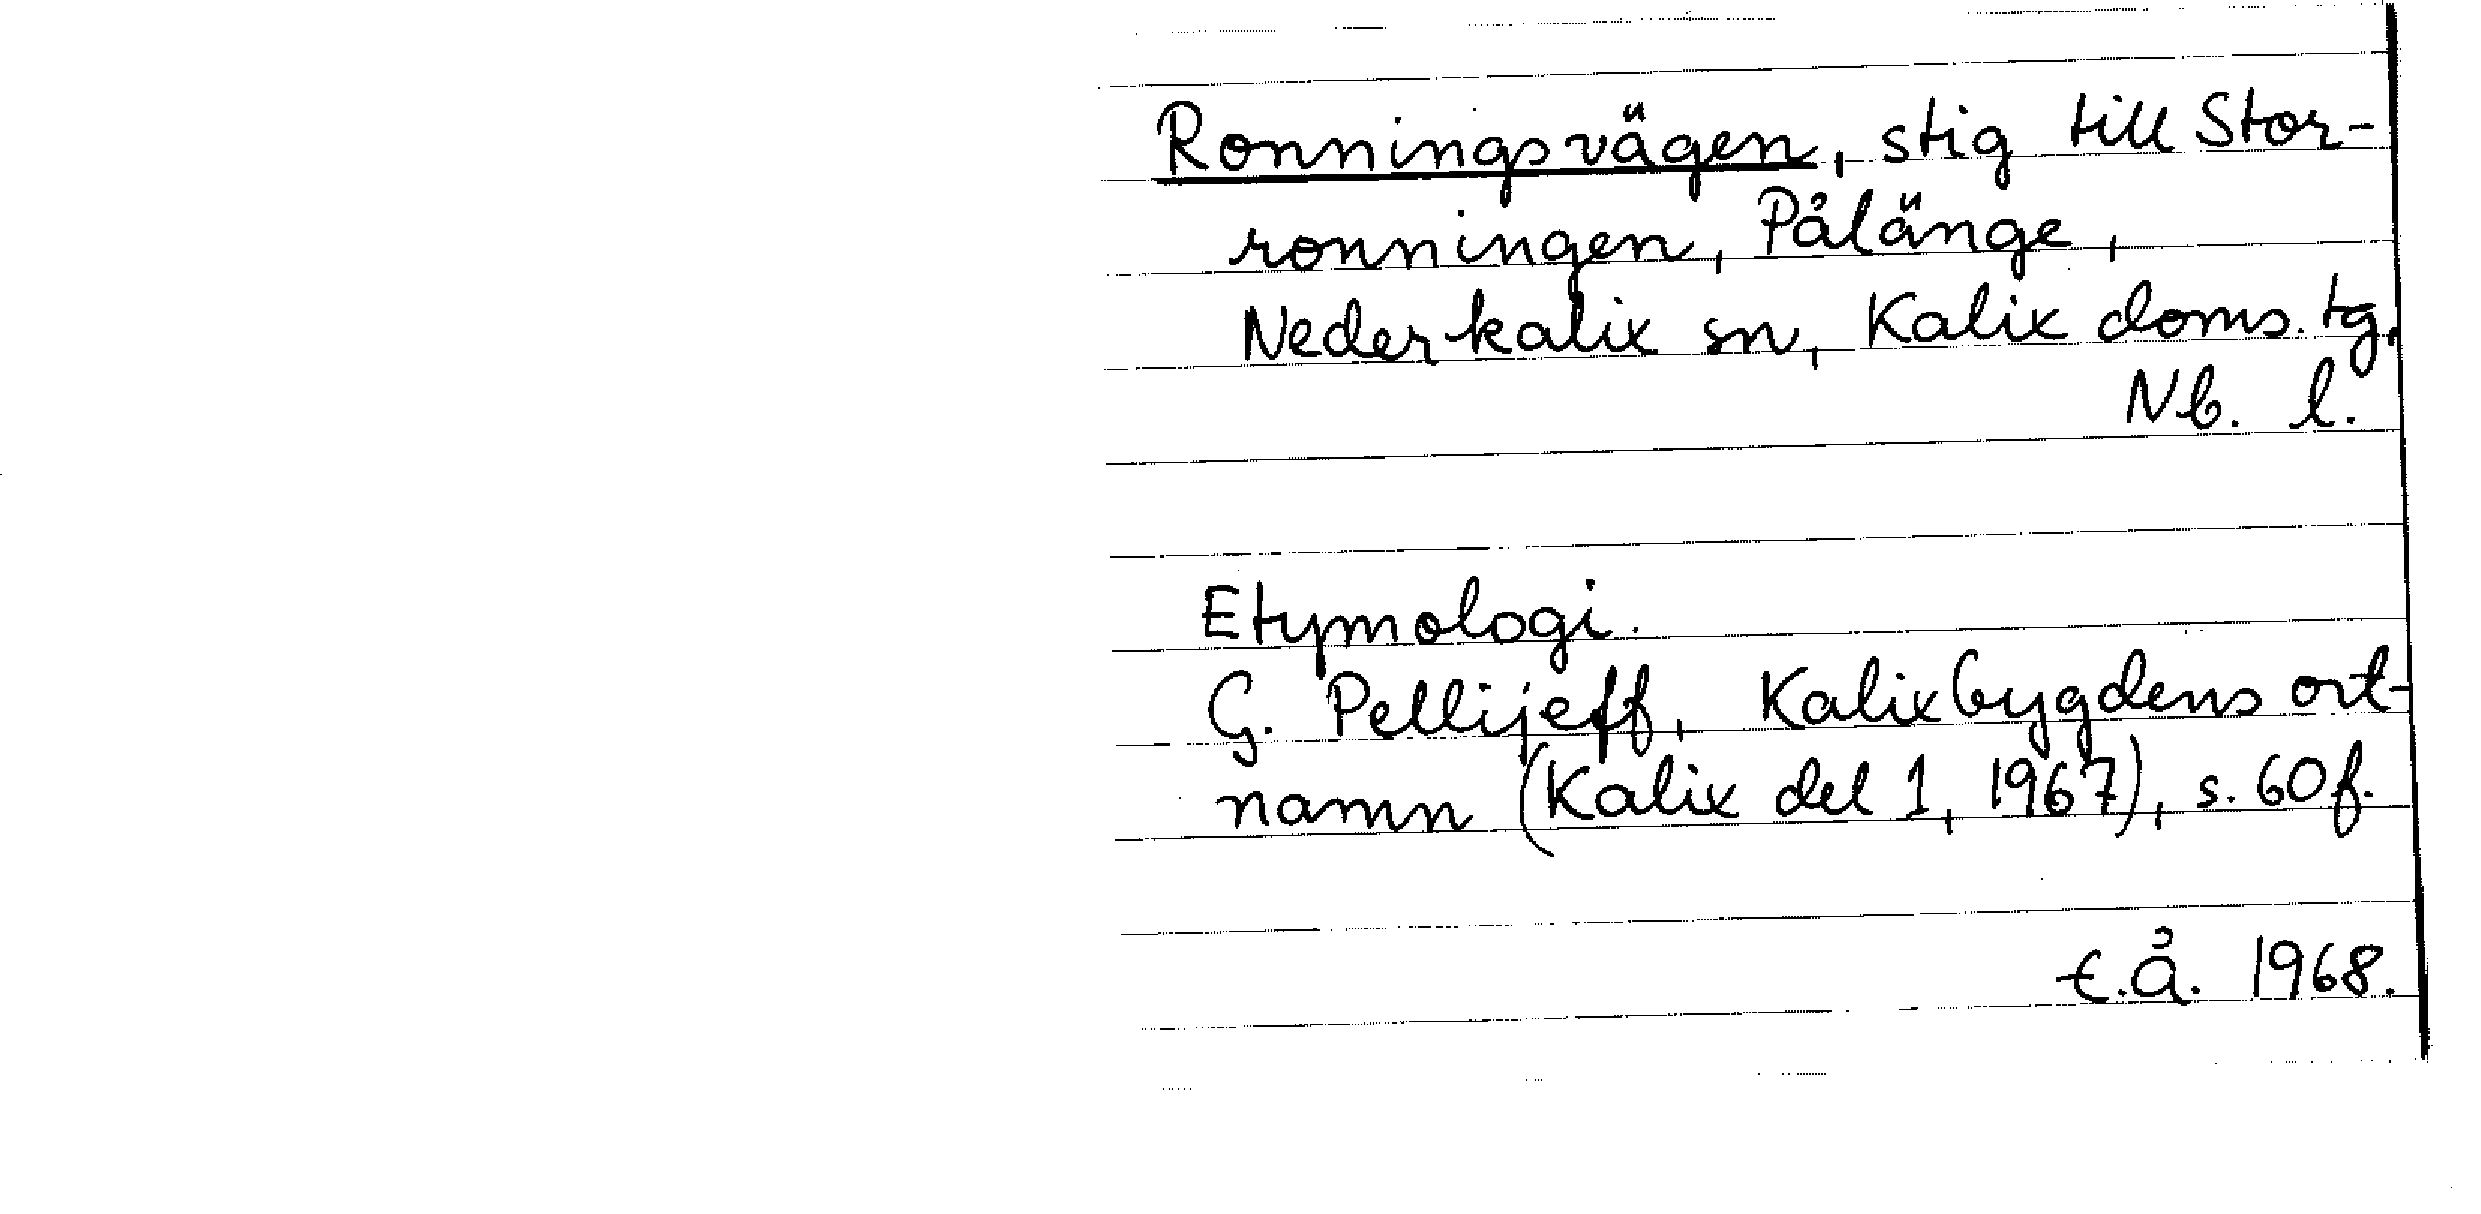 Ronningsvägen, stig till Stor-
ronningen, Pålänge,
Nederkalix sn, Kalix doms. tg,
Nb. l.
Etymologi.
G. Pellijeff, Kalixbygdens ort-
namn (Kalix del 1, 1967), s. 60 f.
t.å. 1968.